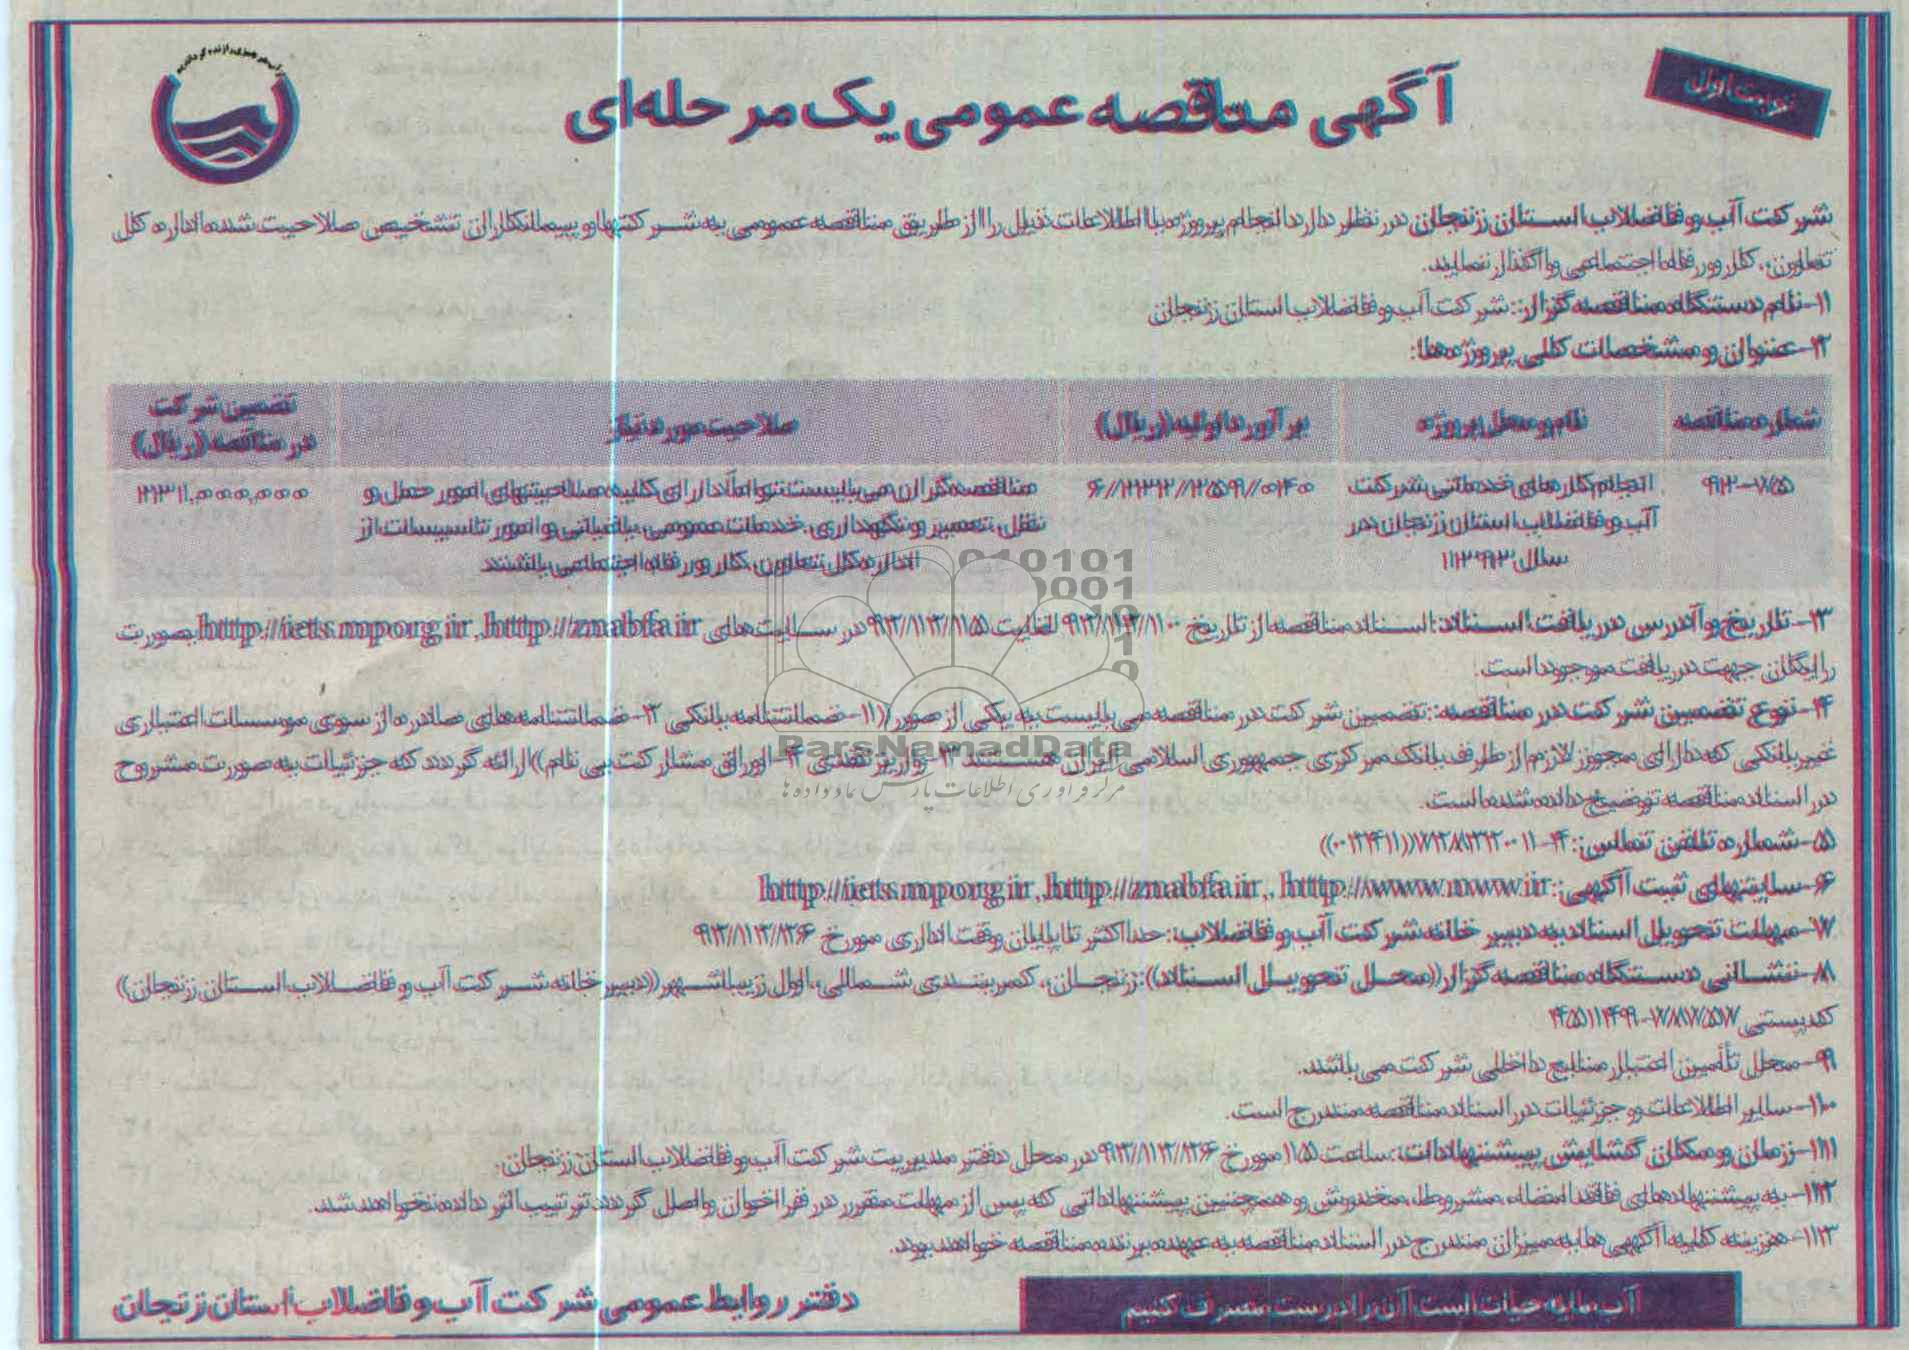 نوبت اول
آگهی مناقصه عمومی یک مرحله‌ای
شرکت آب و فاضلاب استان زنجان در نظر دارد انجام پروژه با اطلاعات ذیل را از طریق مناقصه عمومی به شرکتها و پیمانکاران تشخیص صلاحیت شده اداره کل
تعاون، کار و رفاه اجتماعی واگذار نماید.
۱- نام دستگاه مناقصه گزار: شرکت آب و فاضلاب استان زنجان
۲- عنوان و مشخصات کلی پروژه ها:
شماره مناقصه	نام و محل پروژه	برآورد اولیه (ریال)	صلاحیت مورد نیاز	تضمین شرکت در مناقصه (ریال)
انجام کارهای خدماتی شرکت	مناقصه گران می بایست تواماً دارای کلیه صلاحیتهای امور حمل و
آب و فاضلاب استان زنجان در	نقل، تعمیر و نگهداری، خدمات عمومی، باغبانی و امور تاسیسات از
سال	اداره کل تعاون، کار و رفاه اجتماعی باشند
۳- تاریخ و آدرس دریافت اسناد: اسناد مناقصه از تاریخ لغایت در سایت های http://iets.mporg.ir, http://znabfa.ir بصورت
رایگان جهت دریافت موجود است.
۴- نوع تضمین شرکت در مناقصه: تضمین شرکت در مناقصه می بایست به یکی از صور (۱- ضمانتنامه بانکی ۲- ضمانتنامه های صادره از سوی موسسات اعتباری
غیربانکی که دارای مجوز لازم از طرف بانک مرکزی جمهوری اسلامی ایران هستند ۳- واریز نقدی ۴- اوراق مشارکت بی نام) ارائه گردند که جزئیات به صورت مشروح
در اسناد مناقصه توضیح داده شده است.
۵- شماره تلفن تماس:
۶- سایتهای ثبت آگهی: http://iets.mporg.ir, http://znabfa.ir, http://www.nww.ir
۷- مهلت تحویل اسناد به دبیرخانه شرکت آب و فاضلاب: حداکثر تا پایان وقت اداری مورخ
۸- نشانی دستگاه مناقصه گزار (محل تحویل اسناد): زنجان، کمربندی شمالی، اول زیباشهر (دبیرخانه شرکت آب و فاضلاب استان زنجان)
کدپستی
۹- محل تأمین اعتبار منابع داخلی شرکت می باشند.
۱۰- سایر اطلاعات و جزئیات در اسناد مناقصه مندرج است.
۱۱- زمان و مکان گشایش پیشنهادات: ساعت مورخ در محل دفتر مدیریت شرکت آب و فاضلاب استان زنجان.
۱۲- به پیشنهادهای فاقد امضاء، مشروط، مخدوش و همچنین پیشنهاداتی که پس از مهلت مقرر در فراخوان واصل گردند ترتیب اثر داده نخواهد شد.
۱۳- هزینه کلیه آگهی ها به میزان مندرج در اسناد مناقصه به عهده برنده مناقصه خواهد بود.
آب مایه حیات است آن را درست مصرف کنیم
دفتر روابط عمومی شرکت آب و فاضلاب استان زنجان
ParsNamadData
مرکز فرآوری اطلاعات پارس نماد داده ها